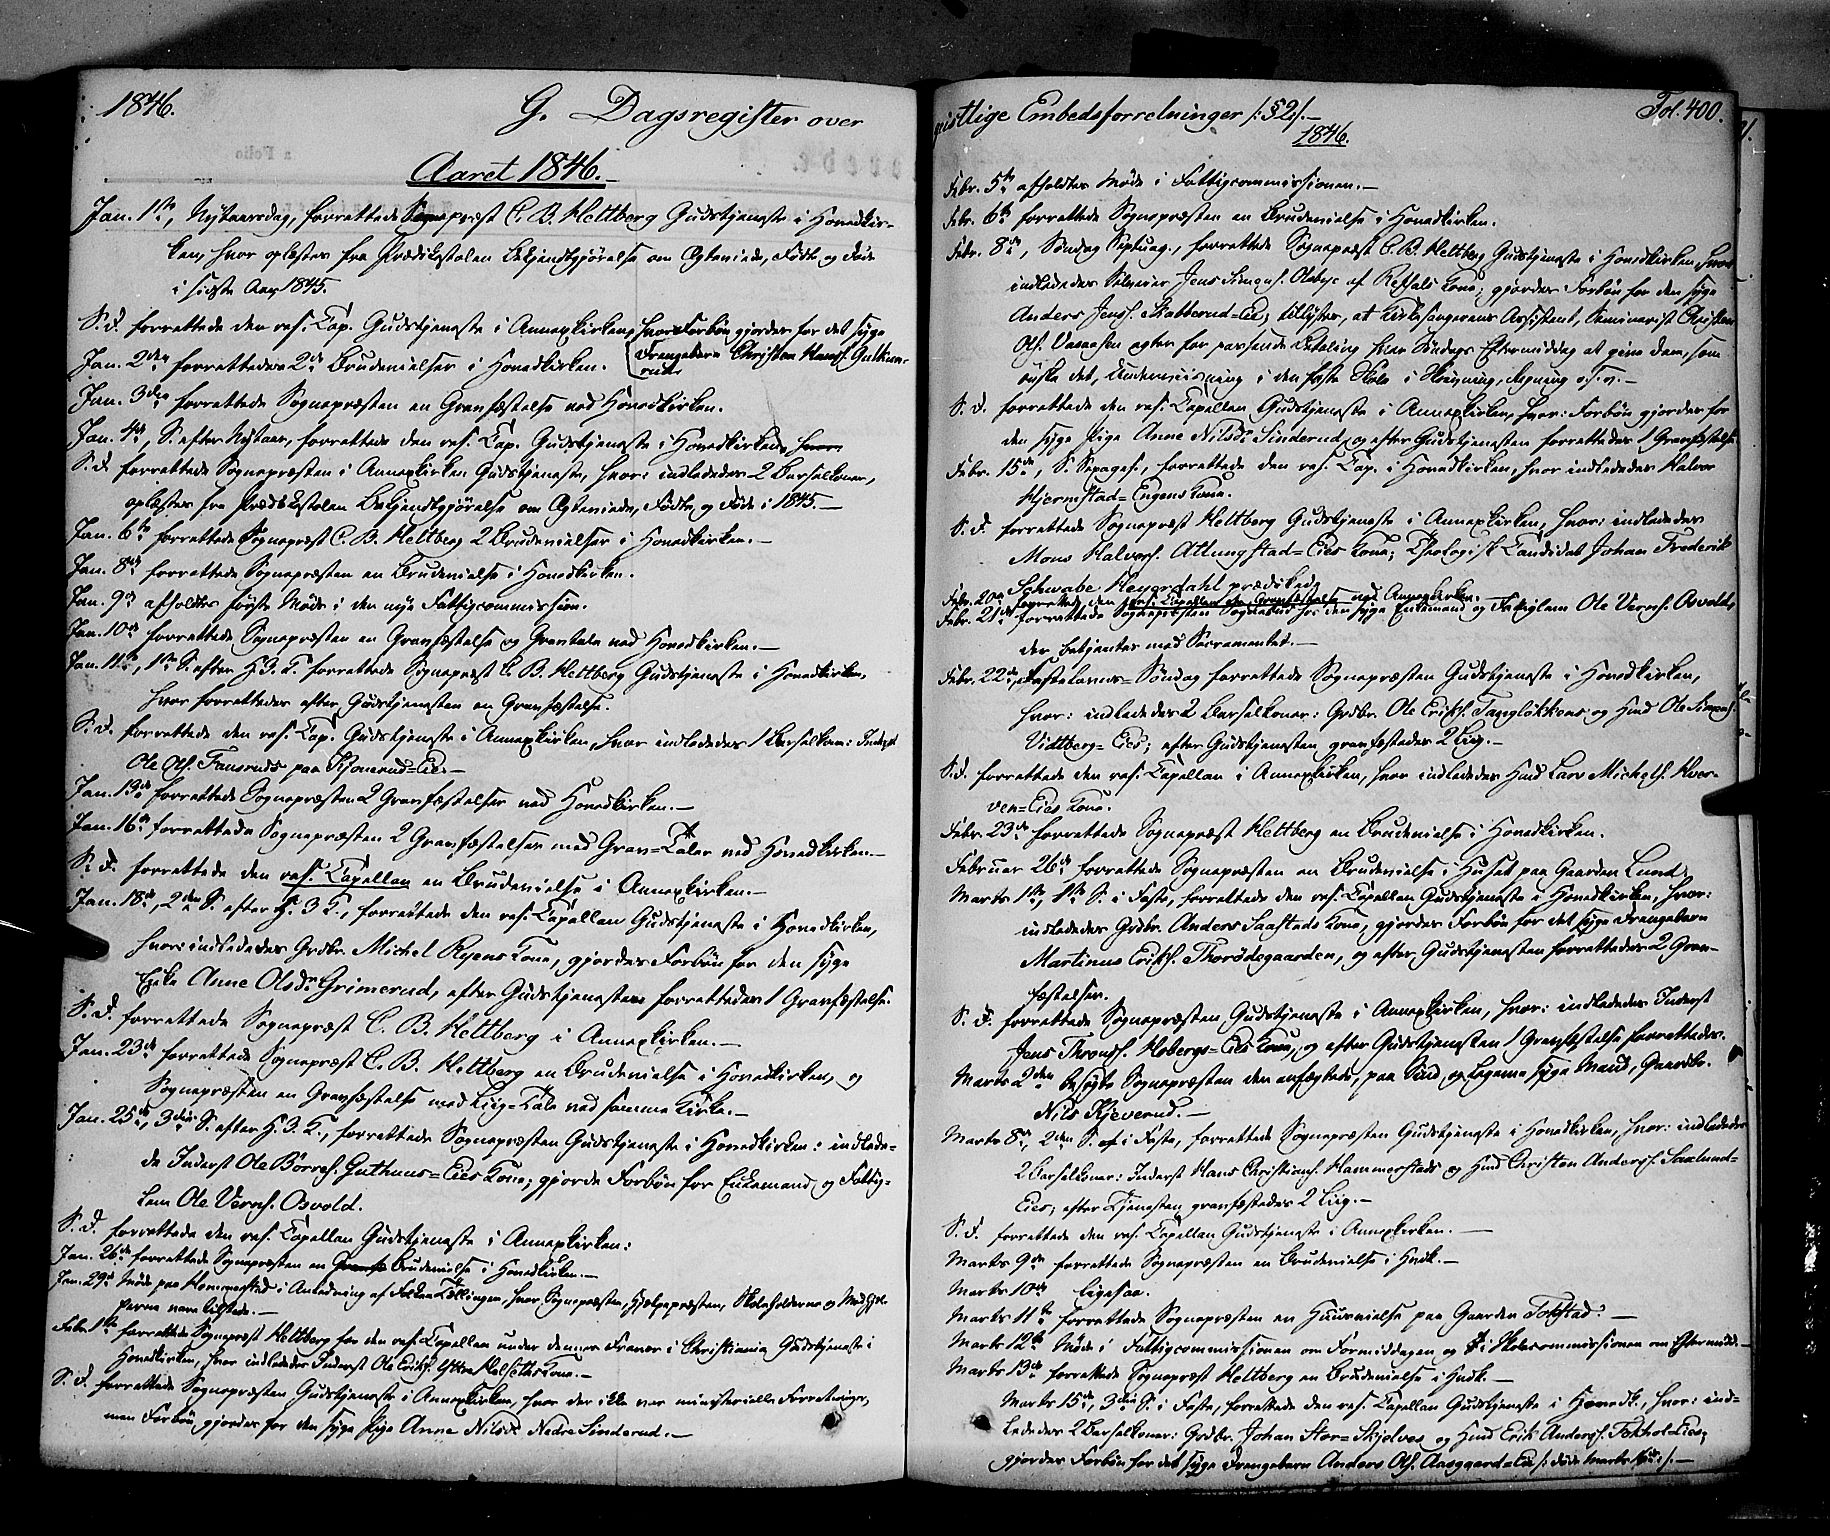 1846.
G. Dagsregister over
Aaret 1846.
Jan. 1ste, Nytaarsdag, forrettede Sognepræst C. B. Heltberg Gudstjeneste i Hovedkir-
ken, hvor oplæstes fra Prædikestolen Bekjendtgjørelse om Ægteviede, Fødte og Døde
i sidste Aar 1845.
S. d. forrettede den res. Cap. Gudstjeneste i Annexkirken, hvor Forbøn gjordes for det syge
Drengebarn Christen Hansf.
Jan. 2den forrettedes 2de Brudevielser i Hovedkirken.
Jan. 3den forrettede Sognepræsten en Gravfæstelse ved Hovedkirken.
Jan. 4de, S. efter Nytaar, forrettede den res. Cap. Gudstjeneste i Hovedkirken, hvor
S. d. forrettede Sognepræsten i Annexkirken Gudstjeneste, hvor: indlededes 2 Barselkoner,
oplæstes fra Prædikestolen Bekjendtgjørelse om Ægteviede, Fødte og Døde i 1845.
Jan. 6te forrettede Sognepræst C. B. Heltberg 2 Brudevielser i Hovedkirken.
Jan. 8de forrettede Sognepræsten en Brudevielse i Hovedkirken.
Jan. 9de afholdtes første Møde i den nye Fattigcommission.
Jan. 10de forrettede Sognepræsten en Gravfæstelse og Gravtale ved Hovedkirken.
Jan. 11te, 1ste S. efter H. 3 K. forrettede Sognepræst C. B. Heltberg Gudstjeneste i Hovedkirken,
hvor forrettedes efter Gudstjenesten en Gravfæstelse.
S. d. forrettede den res. Cap. Gudstjeneste i Annexkirken, hvor indlededes 1 Barselkone: Inderst
Ole Ols. paa
Jan. 13de forrettede Sognepræsten 2 Gravfæstelser ved Hovedkirken.
Jan. 16de forrettede Sognepræsten 2 Gravfæstelser med Grav=Taler ved Hovedkirken.
S. d. forrettede den res. Capellan en Brudevielse i Annexkirken.
Jan. 18de, 2den S. efter H. 3 K., forrettede den res. Capellan Gudstjeneste i Hovedkirken,
hvor: indlededes Grdbr. Michel Ryens Kone, gjordes Forbøn for den syge
Pike Anne Olsdr Grimerud, efter Gudstjenesten forrettedes 1 Gravfæstelse.
S. d. forrettede Sognepræst C. B. Heltberg i Annexkirken.
Jan. 23de forrettede Sognepræst C. B. Heltberg en Brudevielse i Hovedkirken, og
Sognepræsten en Gravfæstelse med Liig=Tale ved samme Kirke.
Jan. 25de, 3die S. efter H. 3 K., forrettede Sognepræsten Gudstjeneste i Hovedkirken: indlede-
de Inderst Ole Børres. Guthuus=Eies Kone; gjorde Forbøn for Enkemand og Fattig-
lem Ole Vernh. Osvold.
S. d. forrettede den res. Capellan Gudstjeneste i Annexkirken:
Jan. 26de forrettede Sognepræsten en Brudevielse i Hovedkirken.
Jan. 29de Møde paa Hammerstad i Anledning af Folketællingen, hvor Sognepræsten, Hjelpepræsten, Skoleholderne og Medhjel-
perne vare tilstede.
Febr. 1ste forrettede Sognepræst Heltberg for den res. Capellan under dennes Fravær i Christiania Gudstjeneste i
Hovedkirken, hvor indlededes Inderst Ole Eriks. Kone.
S. d. forrettede Sognepræsten Gudstjeneste i Annexkirken, hvor der ikke var ministerielle Forretninger,
men Forbøn gjordes for den syge Pige Anne Nilsdr. Nedre Sinderud.
geistlige Embedsforretninger /:§2/.
Fol. 400.
1846.
Febr. 5te afholdtes Møde i Fattigcommissionen.
Febr. 6te forrettede Sognepræsten en Brudevielse i Hovedkirken.
Febr. 8de, Søndag Septuag., forrettede Sognepræst C. B. Heltberg Gudstjeneste i Hovedkirken, hvor
indlededes Selveier Jens Simons. af Kone; gjordes Forbøn for den syge
Anders Jens. Skabberud=Eie; tillystes, at Kirkesangerens Assistent, Seminarist Christen
Ols. agter for passende Betaling hver Søndags Eftermiddag at give dem, som
ønske det, Underviisning i den faste Skole i Skrivning, Regning o. s. v.
S. d. forrettede den res. Capellan Gudstjeneste i Annexkirken, hvor: Forbøn gjordes for
den syge Pige Anne Nilsdr. Sinderud, og efter Gudstjenesten forrettedes 1 Gravfæstelse.
Febr. 15de, S. Sexages., forrettede den res. Cap. i Hovedkirken, hvor indlededes Halvor
Hjermstad=Engens Kone.
S. d. forrettede Sognepræst Heltberg Gudstjeneste i Annexkirken, hvor: indlededes
Mons Halvors. Atlungstad=Eies Kone; Theologisk Candidat Johan Frederik
Schwabe Heyerdahl prædikede.
Febr. 20de forrettede den res. Capellan en Gravfæstelse ved Annexkirken.
Febr. 21de forrettede Sognepræsten Sognebud hos den syge Enkemand og Fattiglem Ole Vernh. Osvold,
der betjentes med Sacramentet.
Febr. 22de, Fastelavns=Søndag forrettede Sognepræsten Gudstjeneste i Hovedkirken,
hvor: indlededes 2 Barselkoner: Grdbr. Ole Eriks. Tangløkkens og Hmd Ole Simens.
Vidtberg=Eies; efter Gudstjenesten gravfæstedes 2 Liig.
S. d. forrettede den res. Capellan i Annexkirken, hvor indlededes Hmd Lars Michels. Kver-
ven=Eies Kone.
Febr. 23de forrettede Sognepræst Heltberg en Brudevielse i Hovedkirken.
Februar 26de forrettede Sognepræsten en Brudevielse i Huset paa Gaarden Lund.
Marts 1ste, 1ste S. i Faste, forrettede den res. Capellan Gudstjeneste i Hovedkirken, hvor:
indlededes Grdbr. Anders Saastads Kone, gjordes Forbøn for det syge Drengebarn
Martinus Eriks. Thorødegaarden, og efter Gudstjenesten forrettedes 2 Grav-
fæstelser.
S. d. forrettede Sognepræsten Gudstjeneste i Annexkirken, hvor: indlededes Inderst
Jens Thronds. Hobergs=Eies Kone, og efter Gudstjenesten 1 Gravfæstelse forrettedes.
Marts 2den besøgte Sognepræsten den anfægtede, paa Sind og Legeme syge Mand, Gaardbr.
Nils Kjeverud.
Marts 8de, 2den S. i Faste, forrettede Sognepræsten Gudstjeneste i Hovedkirken, hvor: indlededes
2 Barselkoner: Inderst Hans Christians. Hammerstads og Hmd Christen Anders. Saxlund=
Eies; efter Tjenesten gravfæstedes 2 Liig.
S. d. forrettede den res. Capellan Gudstjeneste i Annexkirken.
Marts 9de forrettede Sognepræsten en Brudevielse i Hvdk.
Marts 10de ligesaa.
Marts 11te forrettede Sognepræsten en Huusvielse paa Gaarden Tokstad.
Marts 12te Møde i Fattigcommissionen om Formiddagen og i Skolecommissionen om Eftermidd.
Marts 13de forrettede Sognepræst Heltberg en Brudevielse i Hvdk.
Marts 15de, 3die S. i Faste, forrettede den res. Capellan Gudstjeneste i Hovedk., hvor: ind-
lededes 2 Barselkoner: Grdbr. Johan Stor=Skjelves og Hmd Erik Anders. Eies;
gjordes Forbøn for det syge Drengebarn Anders Ols. Aasgaard=Eie